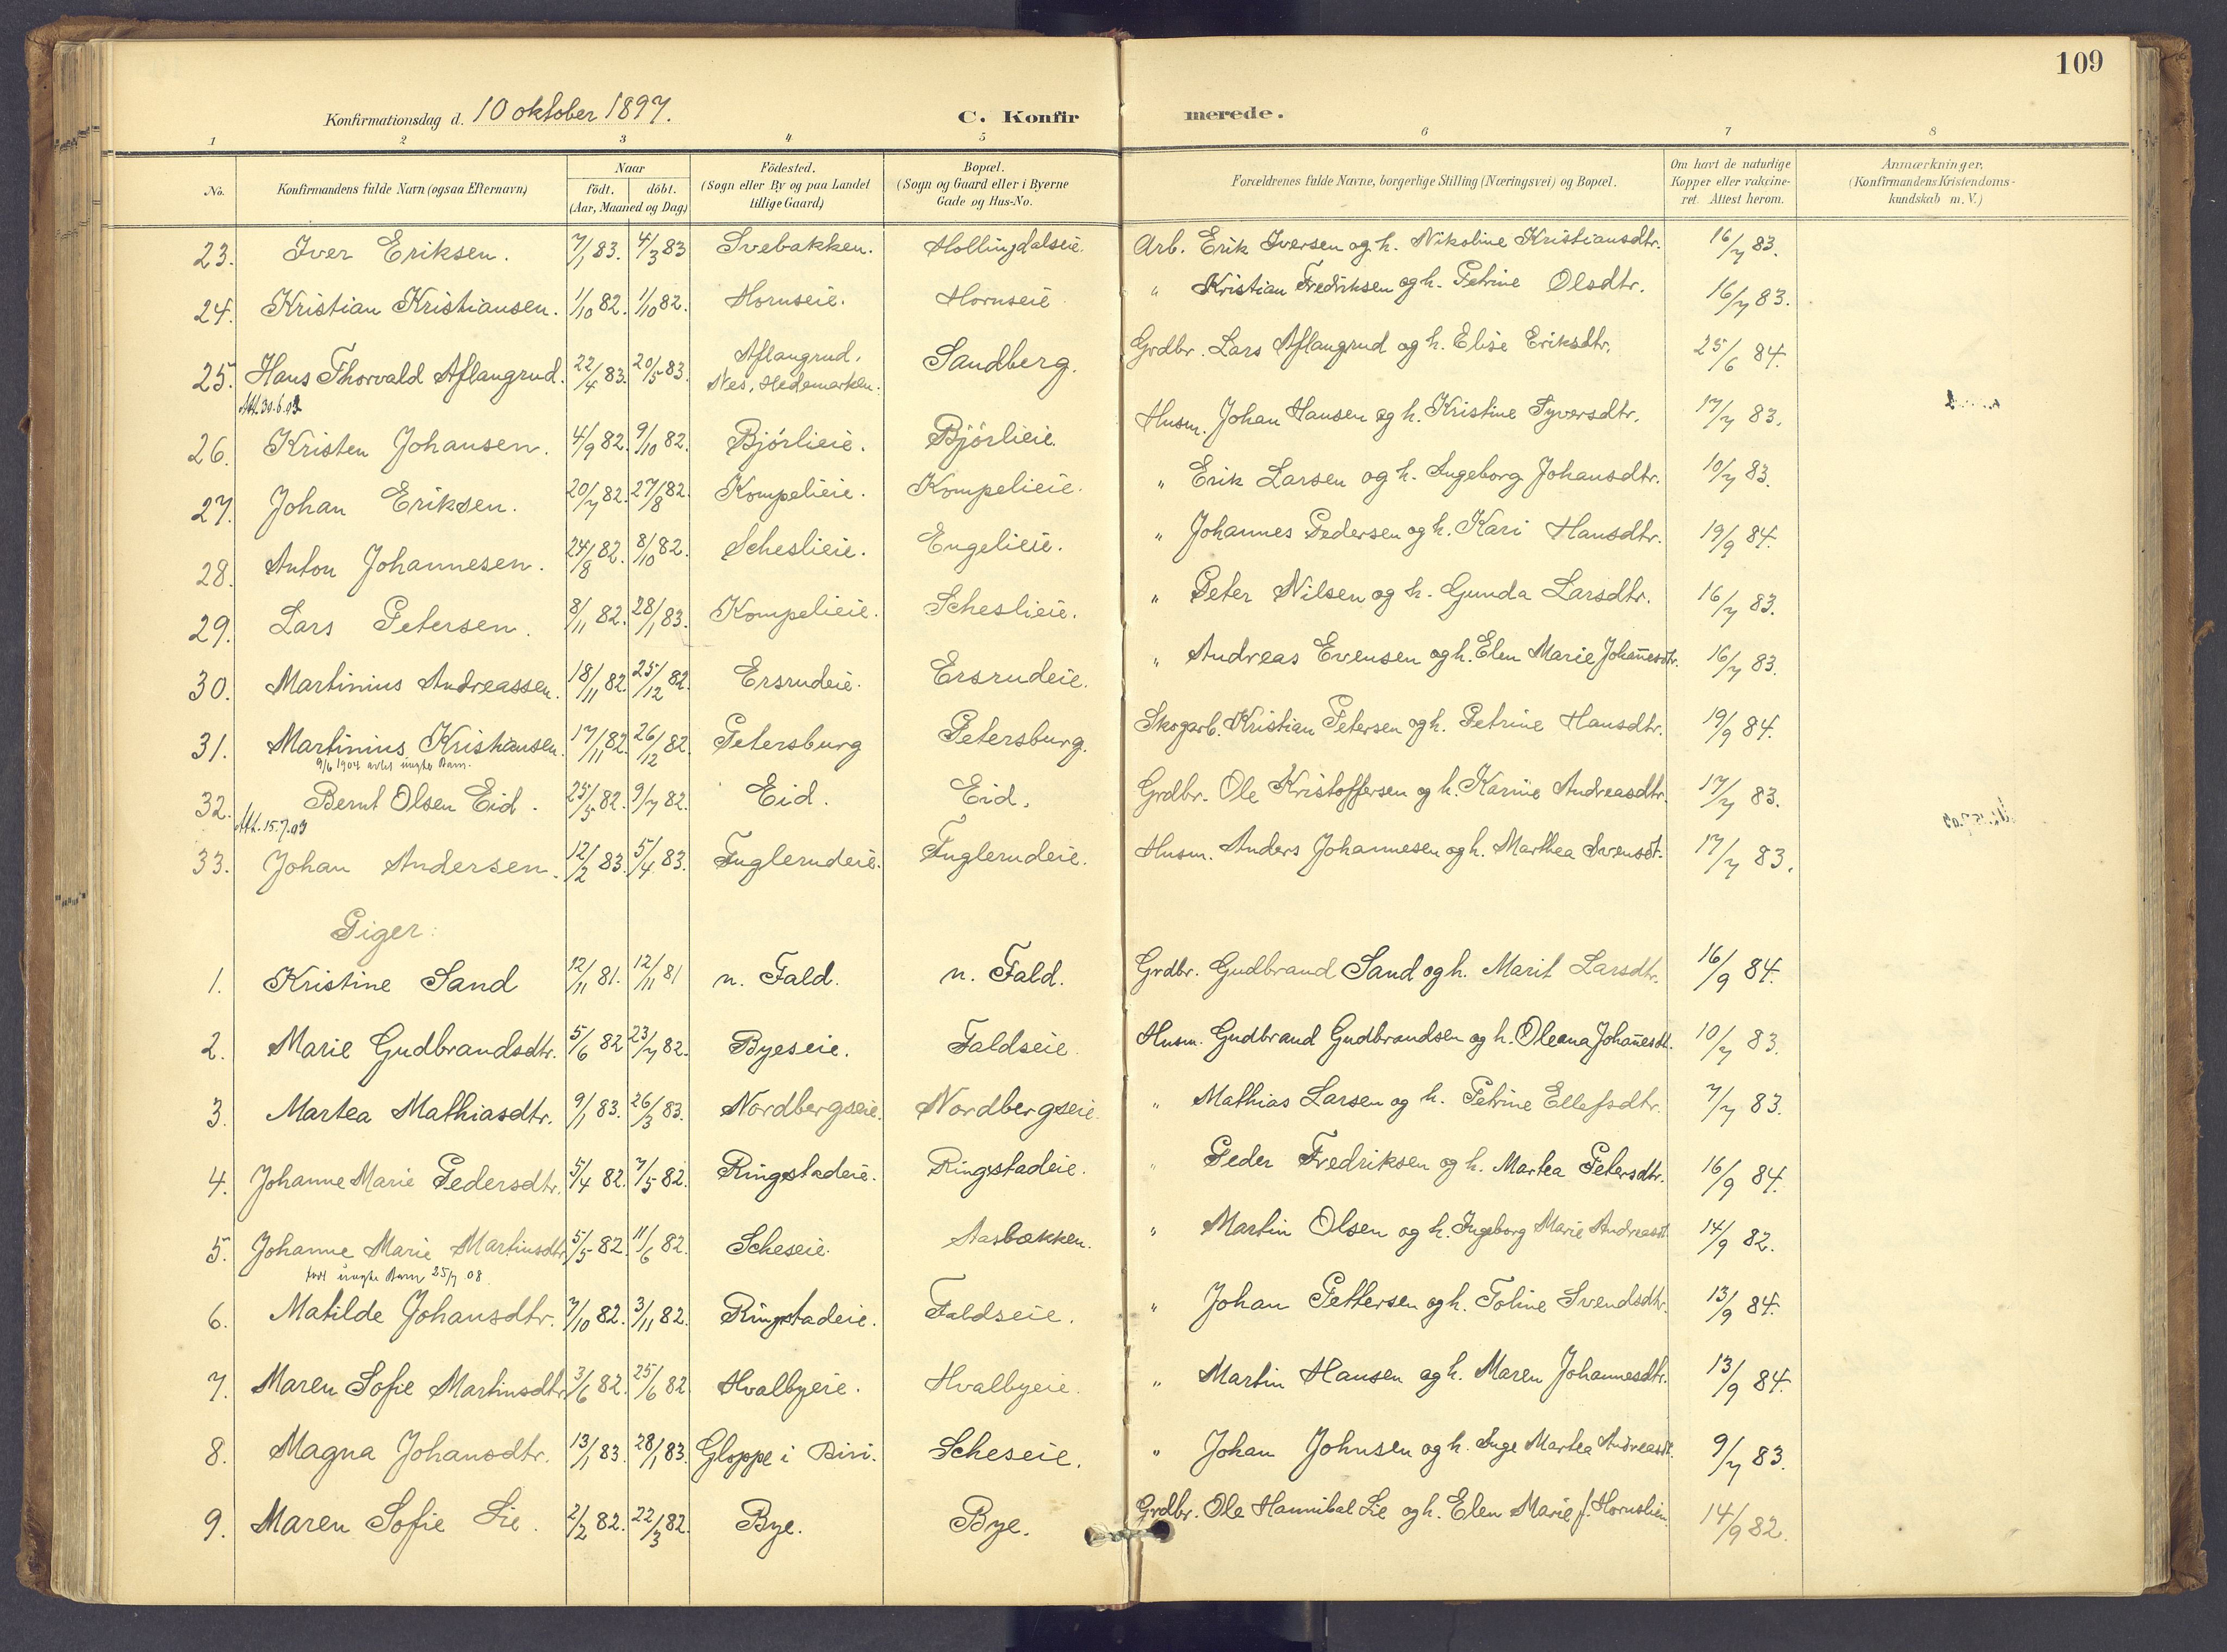 109
Konfirmationsdag d. 10 oktober 1897. C. Konfirmerede.
1 2 3 4 5 6 7 8
No. Konfirmandens fulde Navn (ogsaa Efternavn) Naar födt. döbt. (Aar, Maaned og Dag) Födested. (Sogn eller By og paa Landet tillige Gaard) Bopæl. (Sogn og Gaard eller i Byerne Gade og Hus-No. Forældrenes fulde Navne, borgerlige Stilling (Næringsvei) og Bopæl. Om havt de naturlige Kopper eller vakcineret Attest herom. Anmærkninger. (Konfirmandens Kristendomskundskab m. V.)
23. Iver Eriksen. 7/1 83. 4/3 83 Svebakken. Hollingdalseie. Arb. Erik Iversen og h. Nikoline Kristiansdtr. 16/7 83.
24. Kristian Kristiansen. 1/10 82. 1/10 82. Hornseie. Hornseie " Kristian Fredriksen og h. Petrine Olsdtr. 16/7 83.
25. Hans Thorvald Aflangrud. 22/4 83. 20/5 83. Aflangrud, Nes, Hedemarken. Sandberg. Grdbr. Lars Aflangrud og h. Elise Eriksdtr. 25/6 84.
Att. 30.6.03
26. Kristen Johansen. 4/9 82. 9/10 82. Bjørlieie. Bjørlieie. Husm. Johan Hansen og h. Kristine Syversdtr. 17/7 83.
27. Johan Eriksen. 20/7 82. 27/8 82. Kompelieie. Kompelieie. " Erik Larsen og h. Ingeborg Johansdtr. 10/7 83.
28. Anton Johannesen. 24/8 82. 8/10 82. Scheslieie. Engelieie. " Johannes Pedersen og h. Kari Hansdtr. 19/9 84.
29. Lars Petersen. 8/11 82. 28/1 83. Kompelieie. Scheslieie. " Peter Nilsen og h. Gunda Larsdtr. 16/7 83.
30. Martinius Andreassen. 18/11 82. 25/12 82. Ersrudeie. Ersrudeie. " Andreas Evensen og h. Elen Marie Johan̄esdtr. 16/7 83.
31. Martinius Kristiansen. 17/11 82. 26/12 82. Petersburg Petersburg. Skogarb. Kristian Petersen og h. Petrine Hansdtr. 19/9 84.
9/6 1904 avlet uægte Barn.
32. Bernt Olsen Eid. 25/5 82. 9/7 82. Eid. Eid. Grdbr. Ole Kristoffersen og h. Karine Andreasdtr. 17/7 83.
Att. 15.7.03
33. Johan Andersen. 12/2 83. 5/4 83. Fuglerudeie. Fuglerudeie. Husm. Anders Johannesen og h. Marthea Svensdt. 17/7 83.
Piger:
1. Kristine Sand 12/11 81. 12/11 81 n. Fald. n. Fald. Grdbr. Gudbrand Sand og h. Marit Larsdtr. 16/9 84.
2. Marie Gudbrandsdtr. 5/6 82 23/7 82. Byeseie. Faldseie Husm. Gudbrand Gudbrandsen og h. Oleana Johan̄esdt. 10/7 83.
3. Martea Mathiasdtr. 9/1 83. 26/3 83. Nordbergseie. Nordbergseie. " Mathias Larsen og h. Petrine Ellefsdtr. 7/7 83.
4. Johanne Marie Pedersdtr. 5/4 82. 7/5 82. Ringstadeie. Ringstadeie. " Peder Fredriksen og h. Martea Petersdtr. 16/9 84.
5. Johanne Marie Martinsdtr. 5/5 82. 11/6 82. Scheseie. Aasbækken. " Martin Olsen og h. Ingeborg Marie Andreasdt. 14/9 82.
født uægte Barn 25/7 08.
6. Matilde Johansdtr. 7/10 82. 3/11 82. Ringstadeie. Faldseie. " Johan Pettersen og h. Toline Svendsdtr. 13/9 84.
7. Maren Sofie Martinsdtr. 3/6 82. 25/6 82 Hvalbyeie. Hvalbyeie. " Martin Hansen og h. Maren Johannesdtr. 13/9 84.
8. Magna Johansdtr. 13/1 83. 28/1 83. Gloppe i Biri. Scheseie. " Johan Johnsen og h. Inge Martea Andreasdt. 9/7 83.
9. Maren Sofie Lie. 2/2 82. 22/3 82. Bye. Bye. Grdbr. Ole Hannibal Lie og h. Elen Marie f. Hornslien. 14/9 82.